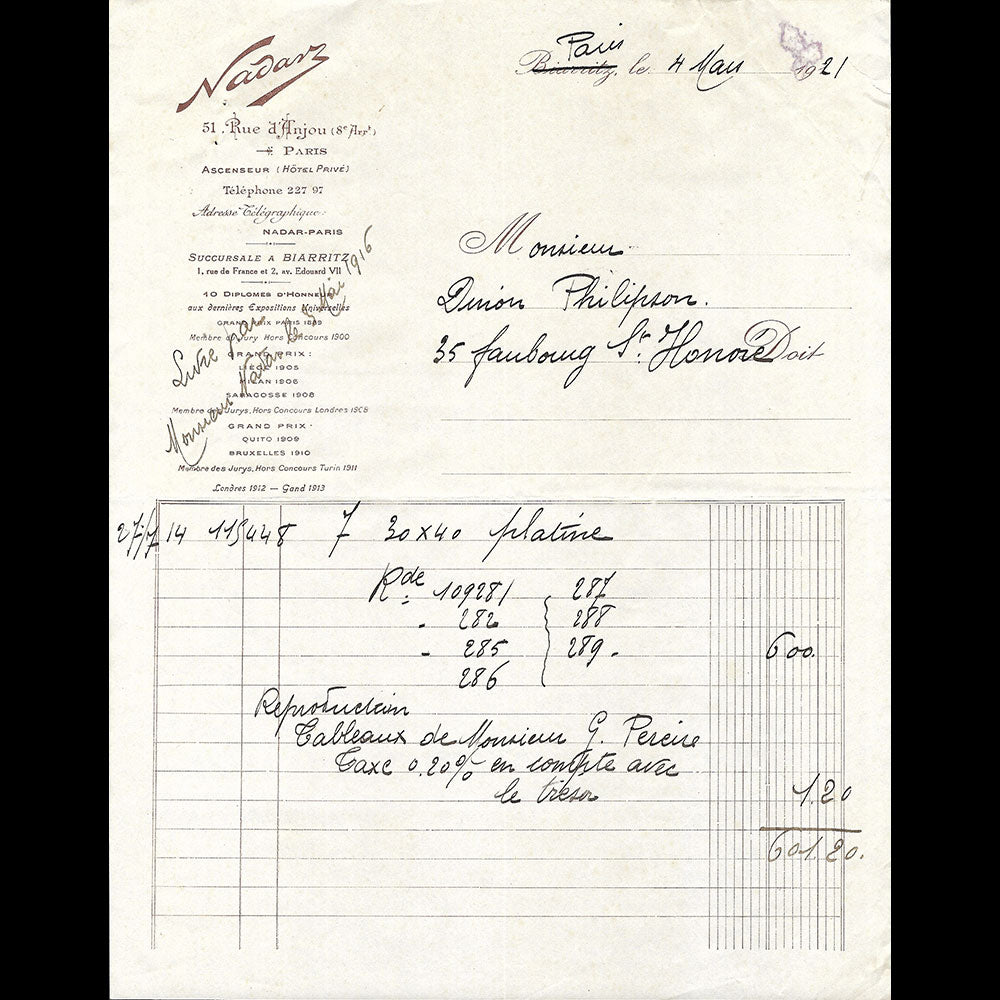 Nadar
51, Rue d'Anjou (8e Arrt)
PARIS
ASCENSEUR (HÔTEL PRIVÉ)
Téléphone 227 97
Adresse Télégraphique:
NADAR-PARIS
SUCCURSALE A BIARRITZ
1, rue de France et 2, av. Edouard VII
10 DIPLOMES D'HONNEUR
aux dernières Expositions Universelles
GRAND PRIX PARIS 1889
Membre du Jury Hors Concours 1900
GRAND PRIX:
LIÈGE 1905
MILAN 1906
SARAGOSSE 1908
Membre des Jurys, Hors Concours Londres 1908
GRAND PRIX
QUITO 1909
BRUXELLES 1910
Membre des Jurys, Hors Concours Turin 1911
Londres 1912 — Gand 1913
Livré par
Monsieur Nadar le 5 Mai 1916
Paris
Biarritz, le 4 Mars 1921
Monsieur
Philipson.
35 faubourg St Honoré Doit
27/7 14 115448 7 30x40 platine
Rde 109281 287
- 282 288
- 285 289 - 600.
286
Reproduction
Tableaux de Monsieur G. Pereire
Taxe 0.20% en compte avec
le trésor 1.20
601.20.